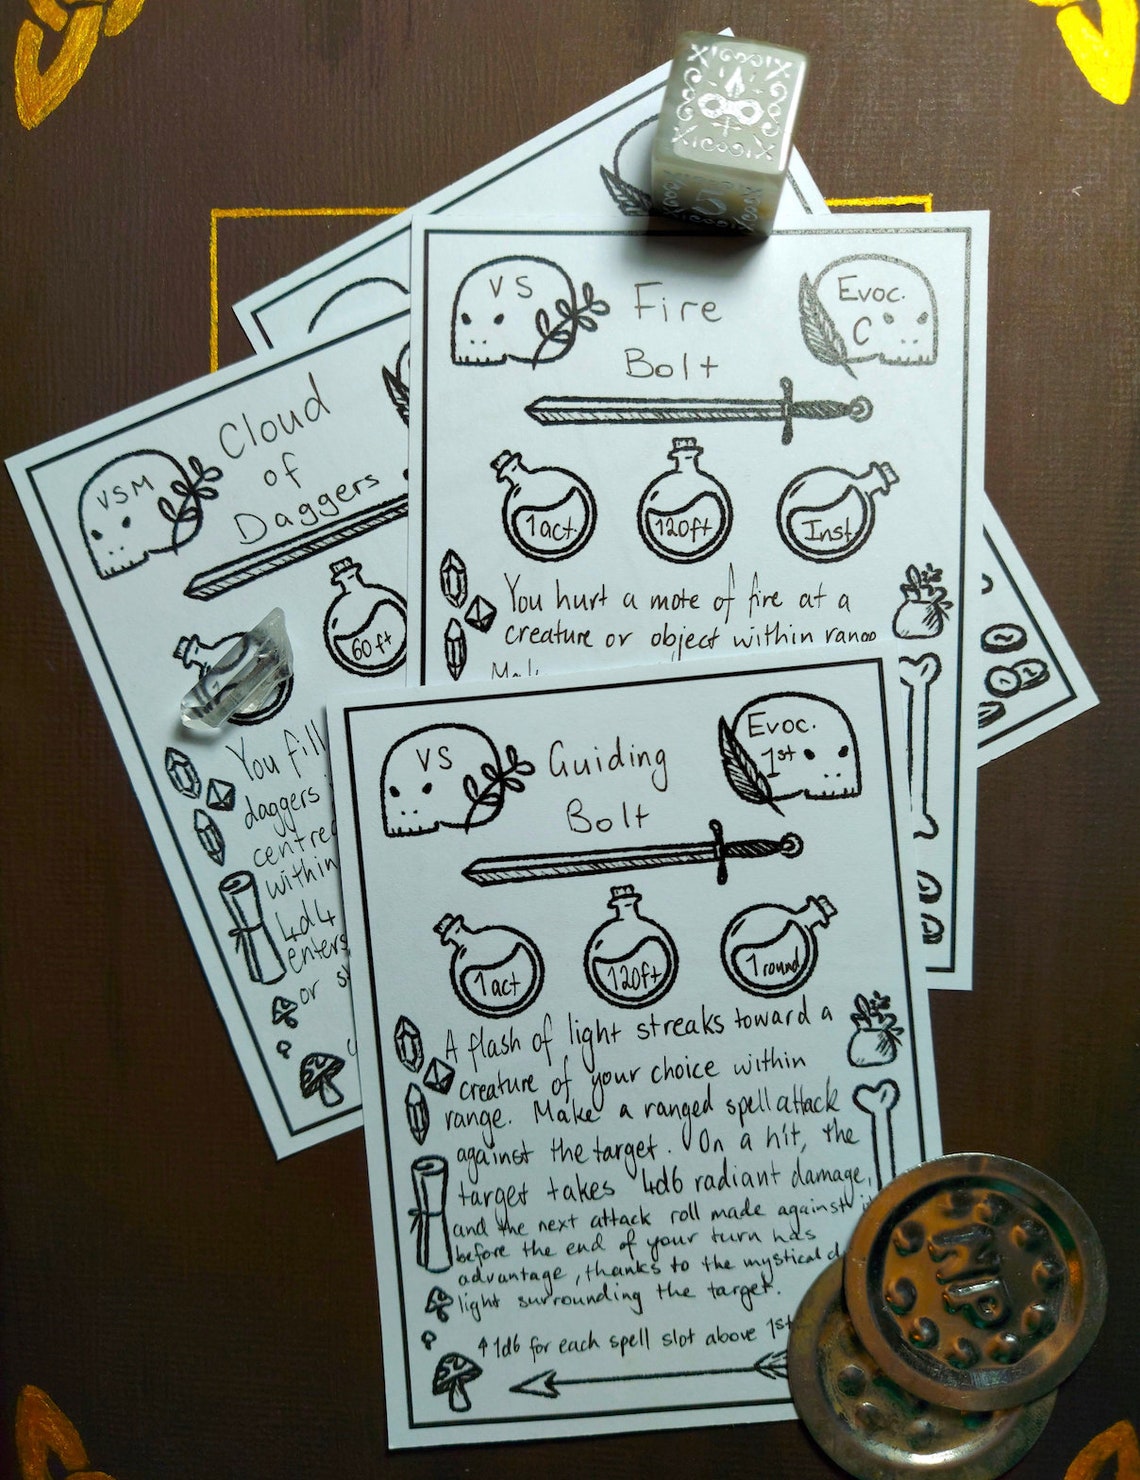 VS
Fire
Bolt
Evoc.
C
1act.
120ft
Inst.
You hurt a mote of fire at a
creature or object within
VSM
Cloud
of
Daggers
60ft
You fill
daggers
centred
within
4d4
enters
or
VS
Guiding
Bolt
Evoc.
1st
1act
120ft
1 round
A flash of light streaks toward a
creature of your choice within
range. Make a ranged spell attack
against the target. On a hit, the
target takes 4d6 radiant damage,
and the next attack roll made against it
before the end of your turn has
advantage, thanks to the mystical
light surrounding the target.
↑1d6 for each spell slot above 1st
5
1
2